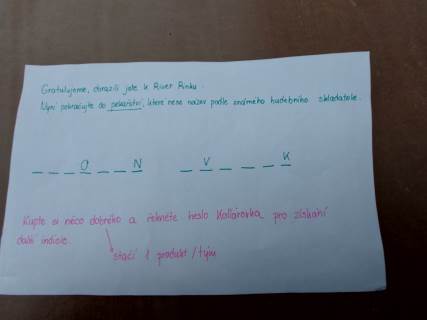 Gratulujeme, dorazili jste k River Rinku.
Nyní pokračujte do pekařství, které nese název podle známého hudebního skladatele.
_ _ _ O _ _ N _ V _ _ _ K
Kupte si něco dobrého a řekněte heslo Kollárovka pro získání
další indicie.
stačí 1 produkt / tým